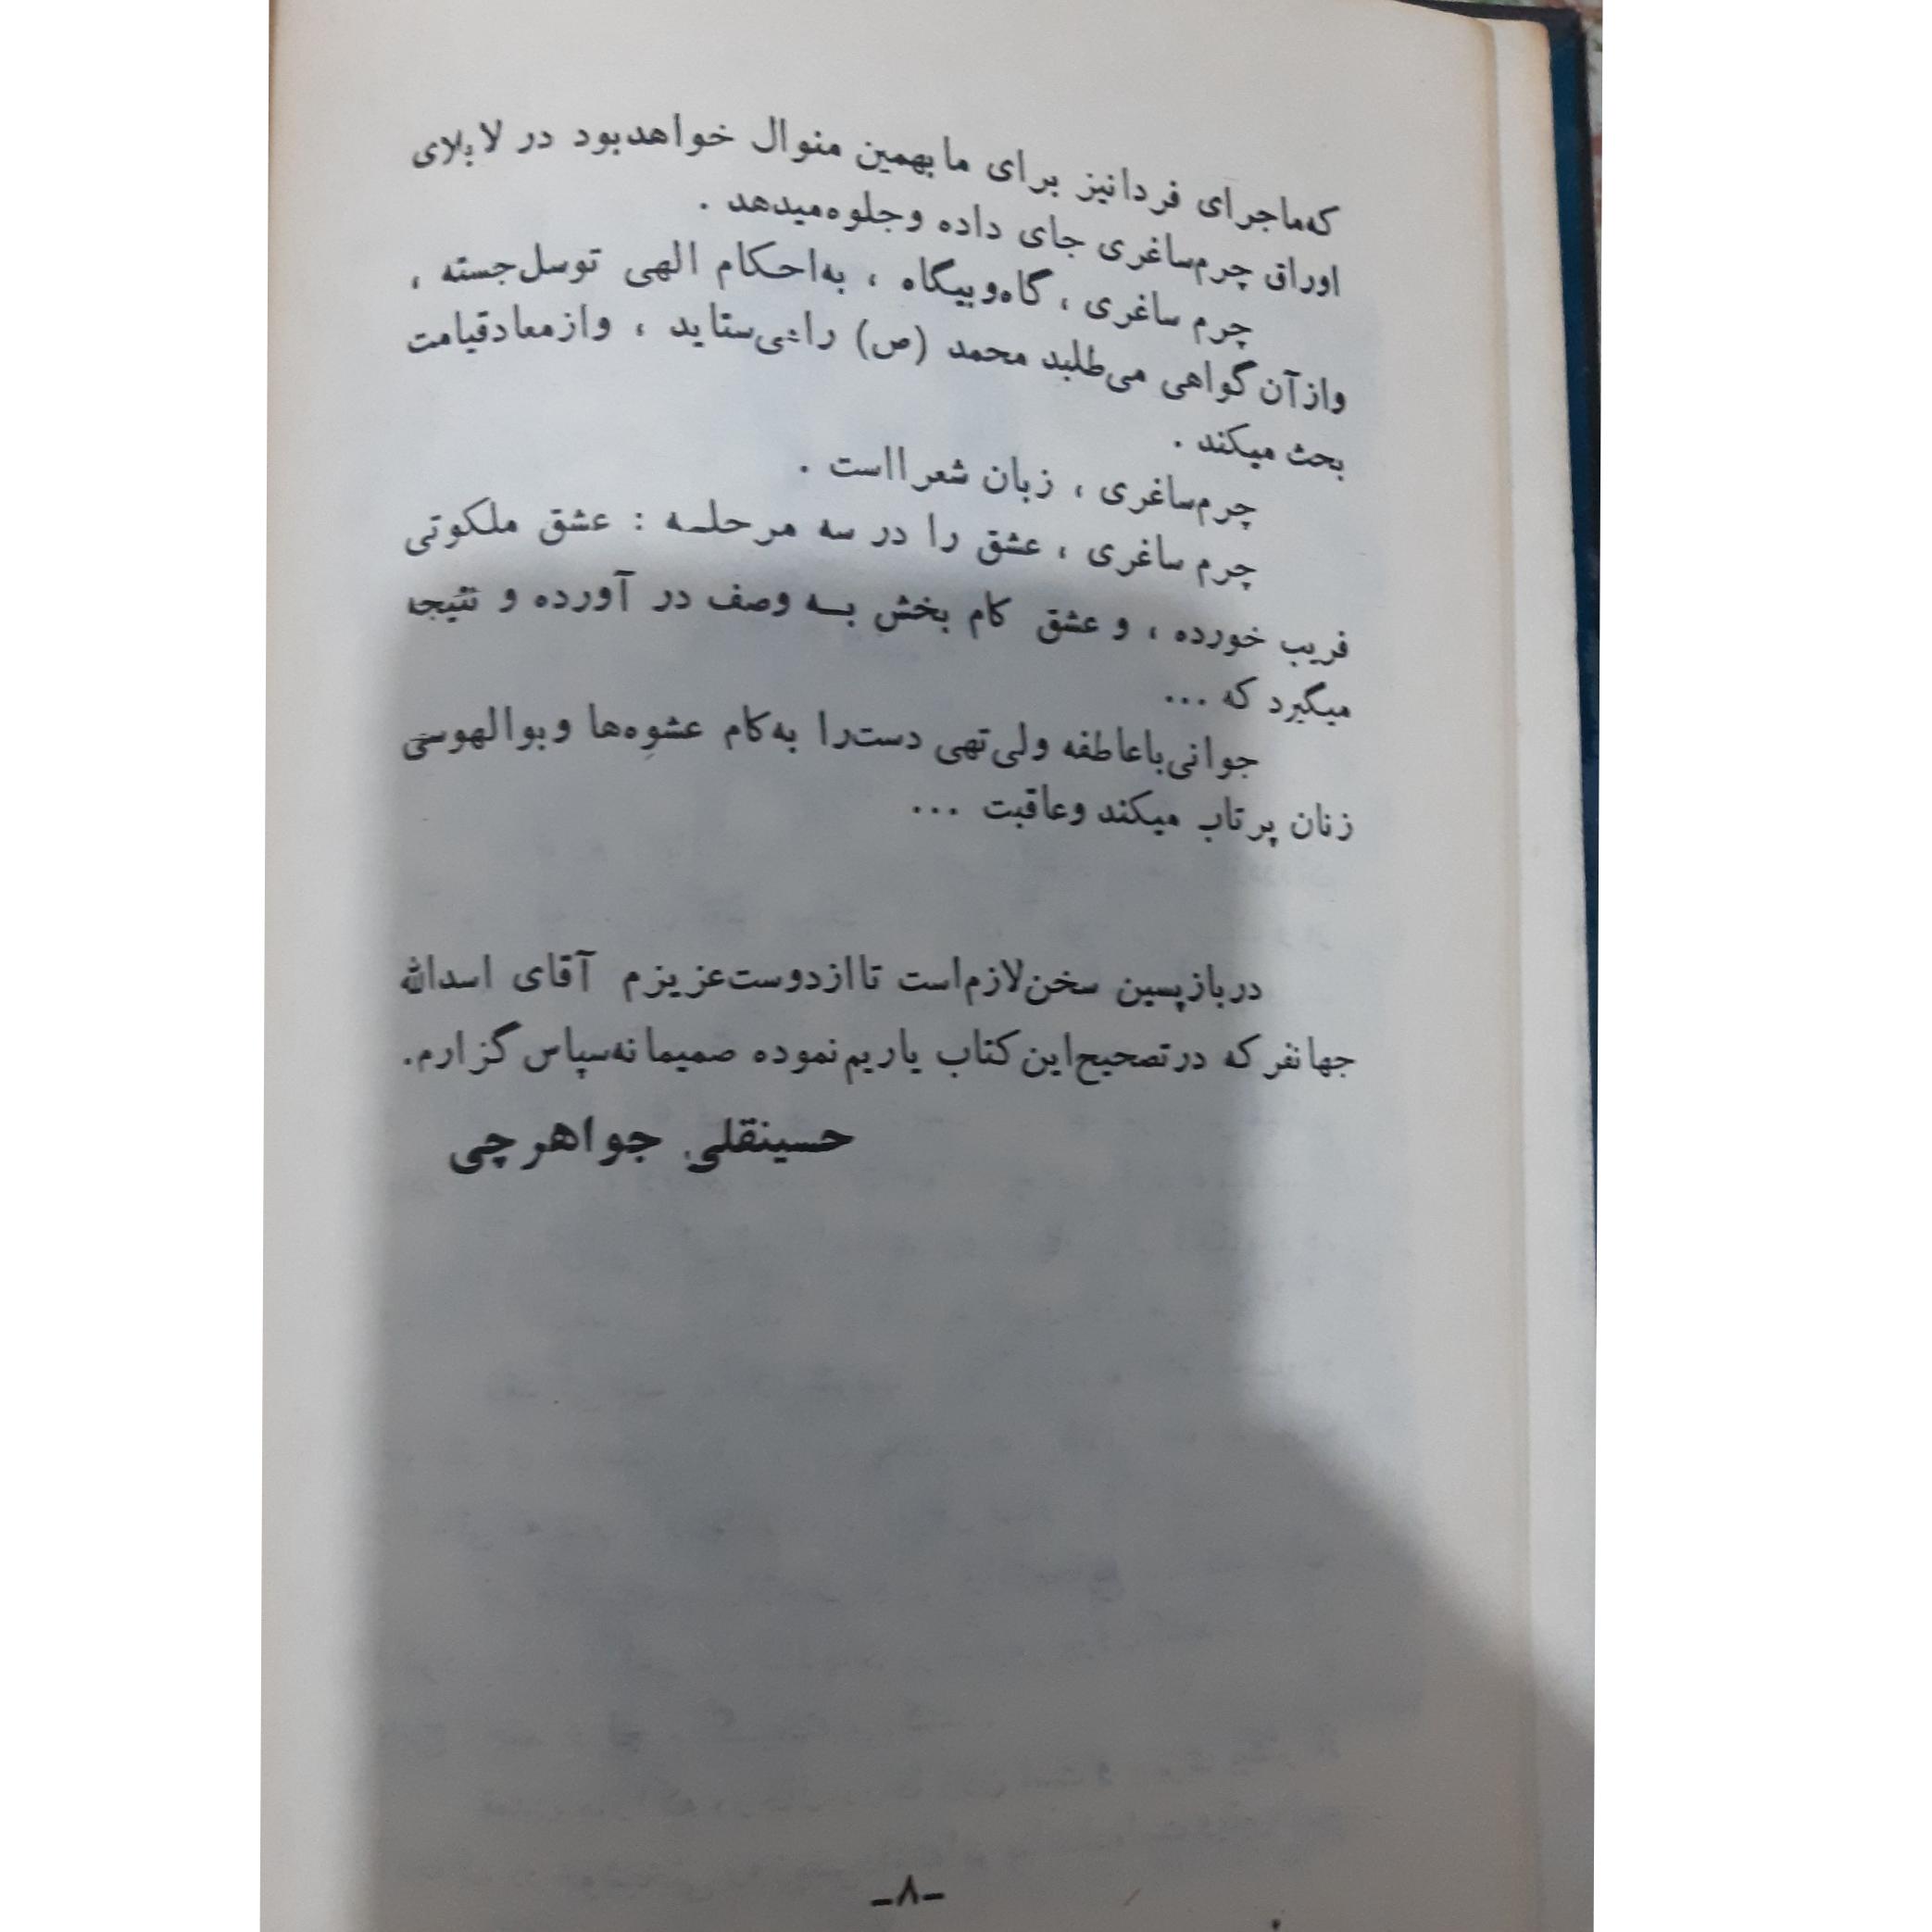 که‌ماجرای فردانیز برای مابهمین منوال خواهدبود در لابلای
اوراق چرم‌ساغری جای داده وجلوه‌میدهد .
چرم ساغری ، گاه‌وبیگاه ، به‌احکام الهی توسل‌جسته ،
وازآن گواهی می‌طلبد محمد (ص) رامی‌ستاید ، وازمعادقیامت
بحث میکند .
چرم‌ساغری ، زبان شعرااست .
چرم ساغری ، عشق را در سه مرحله : عشق ملکوتی
فریب خورده ، و عشق کام بخش به وصف در آورده و نتیجه
میگیرد که ...
جوانی‌باعاطفه ولی‌تهی دست‌را به‌کام عشوه‌ها وبوالهوسی
زنان پرتاب میکند وعاقبت ...
دربازپسین سخن‌لازم‌است تااز‌دوست‌عزیزم آقای اسدالله
جهانفرکه درتصحیح‌این‌کتاب یاریم‌نموده صمیمانه‌سپاس‌گزارم.
حسینقلی جواهرچی
-۸-